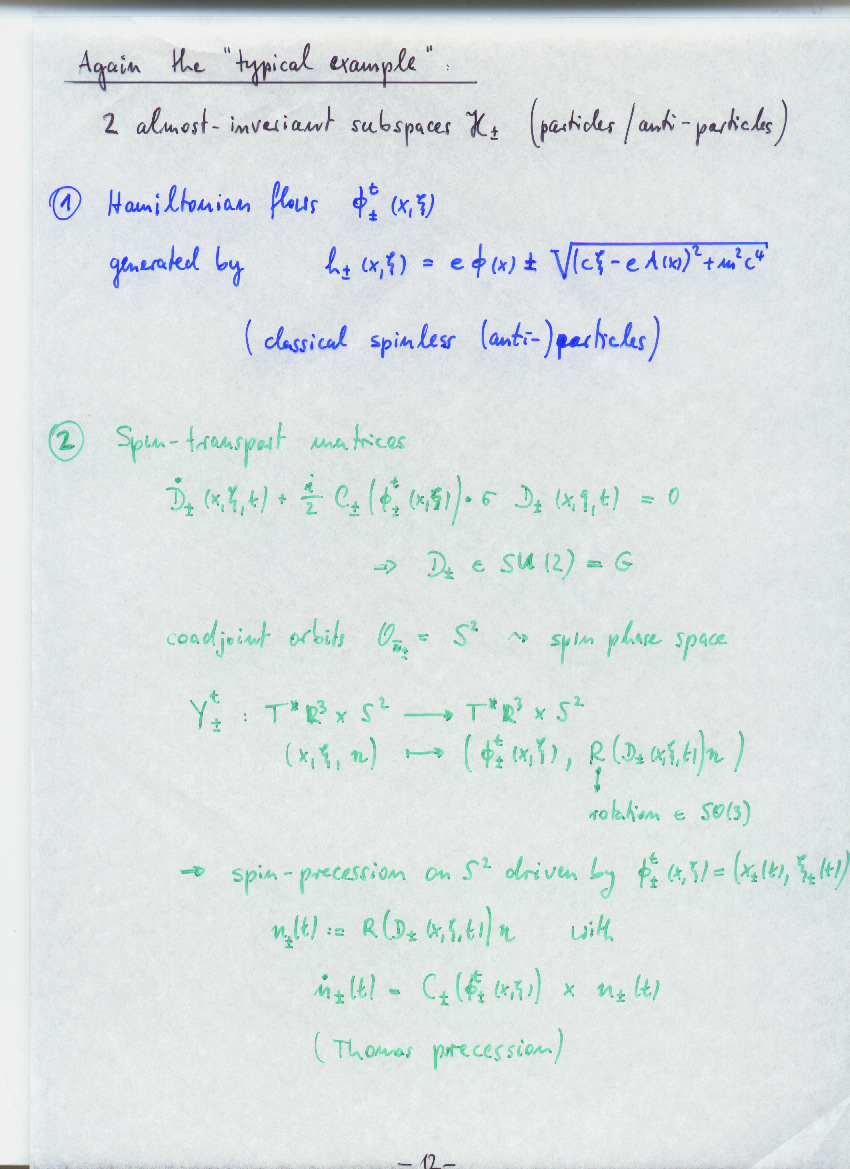 Again the "typical example":
2 almost-invariant subspaces ℋ± (particles / anti-particles)
① Hamiltonian flows ϕ±ᵗ (x,ξ)
generated by h± (x,ξ) = e ϕ(x) ± √((cξ - e A(x))² + m²c⁴)
(classical spinless (anti-)particles)
② Spin-transport matrices
Ḋ± (x,ξ,t) + i/2 C± (ϕ±ᵗ (x,ξ)) · σ D± (x,ξ,t) = 0
⇒ D± ∈ SU(2) = G
coadjoint orbits O = S² ⇝ spin phase space
Y±ᵗ : T*ℝ³ × S² ⟶ T*ℝ³ × S²
(x, ξ, n) ⟼ (ϕ±ᵗ (x,ξ), R(D± (x,ξ,t))n)
↓
rotation ∈ SO(3)
⇒ spin-precession on S² driven by ϕ±ᵗ (x,ξ) = (x±(t), ξ±(t))
n±(t) := R(D± (x,ξ,t))n with
ṅ±(t) = C±(ϕ±ᵗ (x,ξ)) × n±(t)
(Thomas precession)
- 12 -